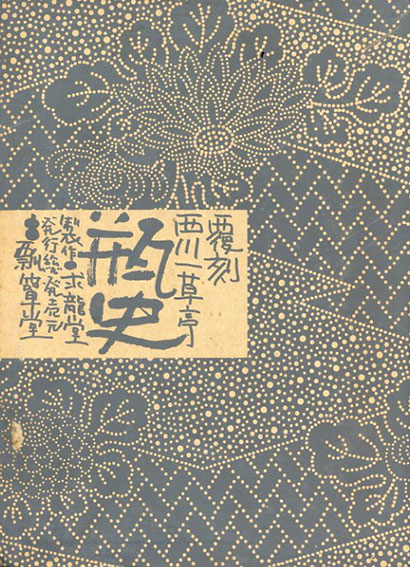 覆刻
西川一草亭
瓶史
製作●求龍堂
発行総発売元
●芸艸堂